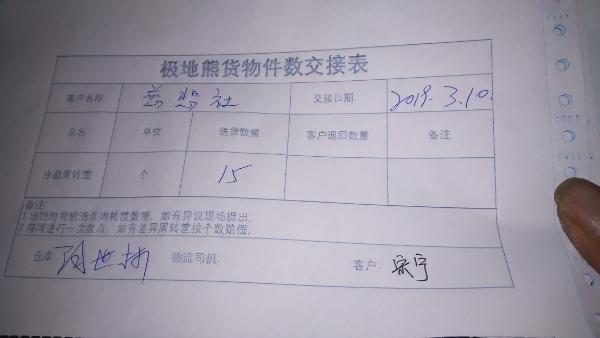 极地熊货物件数交接表
客户名称 交接日期: 2019.3.10.
品名 单位 送货数量 客户退回数量 备注
冷藏周转筐 个 15
备注:
1.出货时司机清点周转筐数量，如有异议现场提出；
2.每周进行一次盘点，如有差异周转筐按个数赔偿；
仓库: 物流司机: 客户: 宋宁